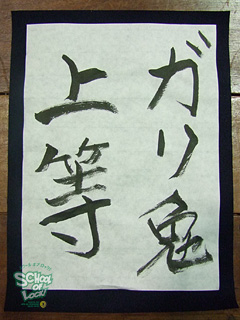 ガリ勉
上等
SCHOOL
OF
LOCK!